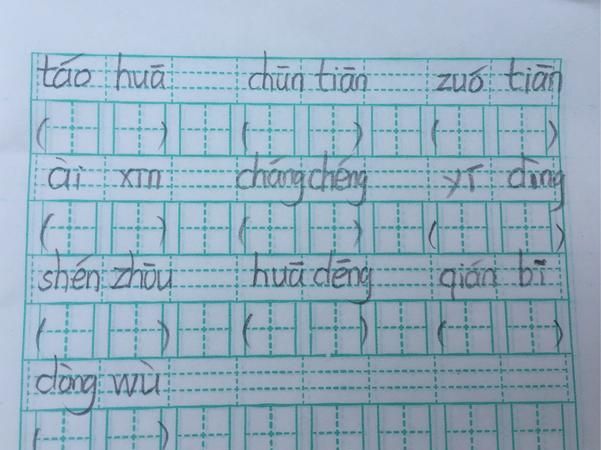 táo huā chūn tiān zuó tiān
( ) ( ) ( )
ài xīn cháng chéng yī dìng
( ) ( ) ( )
shén zhōu huā dēng qián bī
( ) ( ) ( )
dòng wù
( )